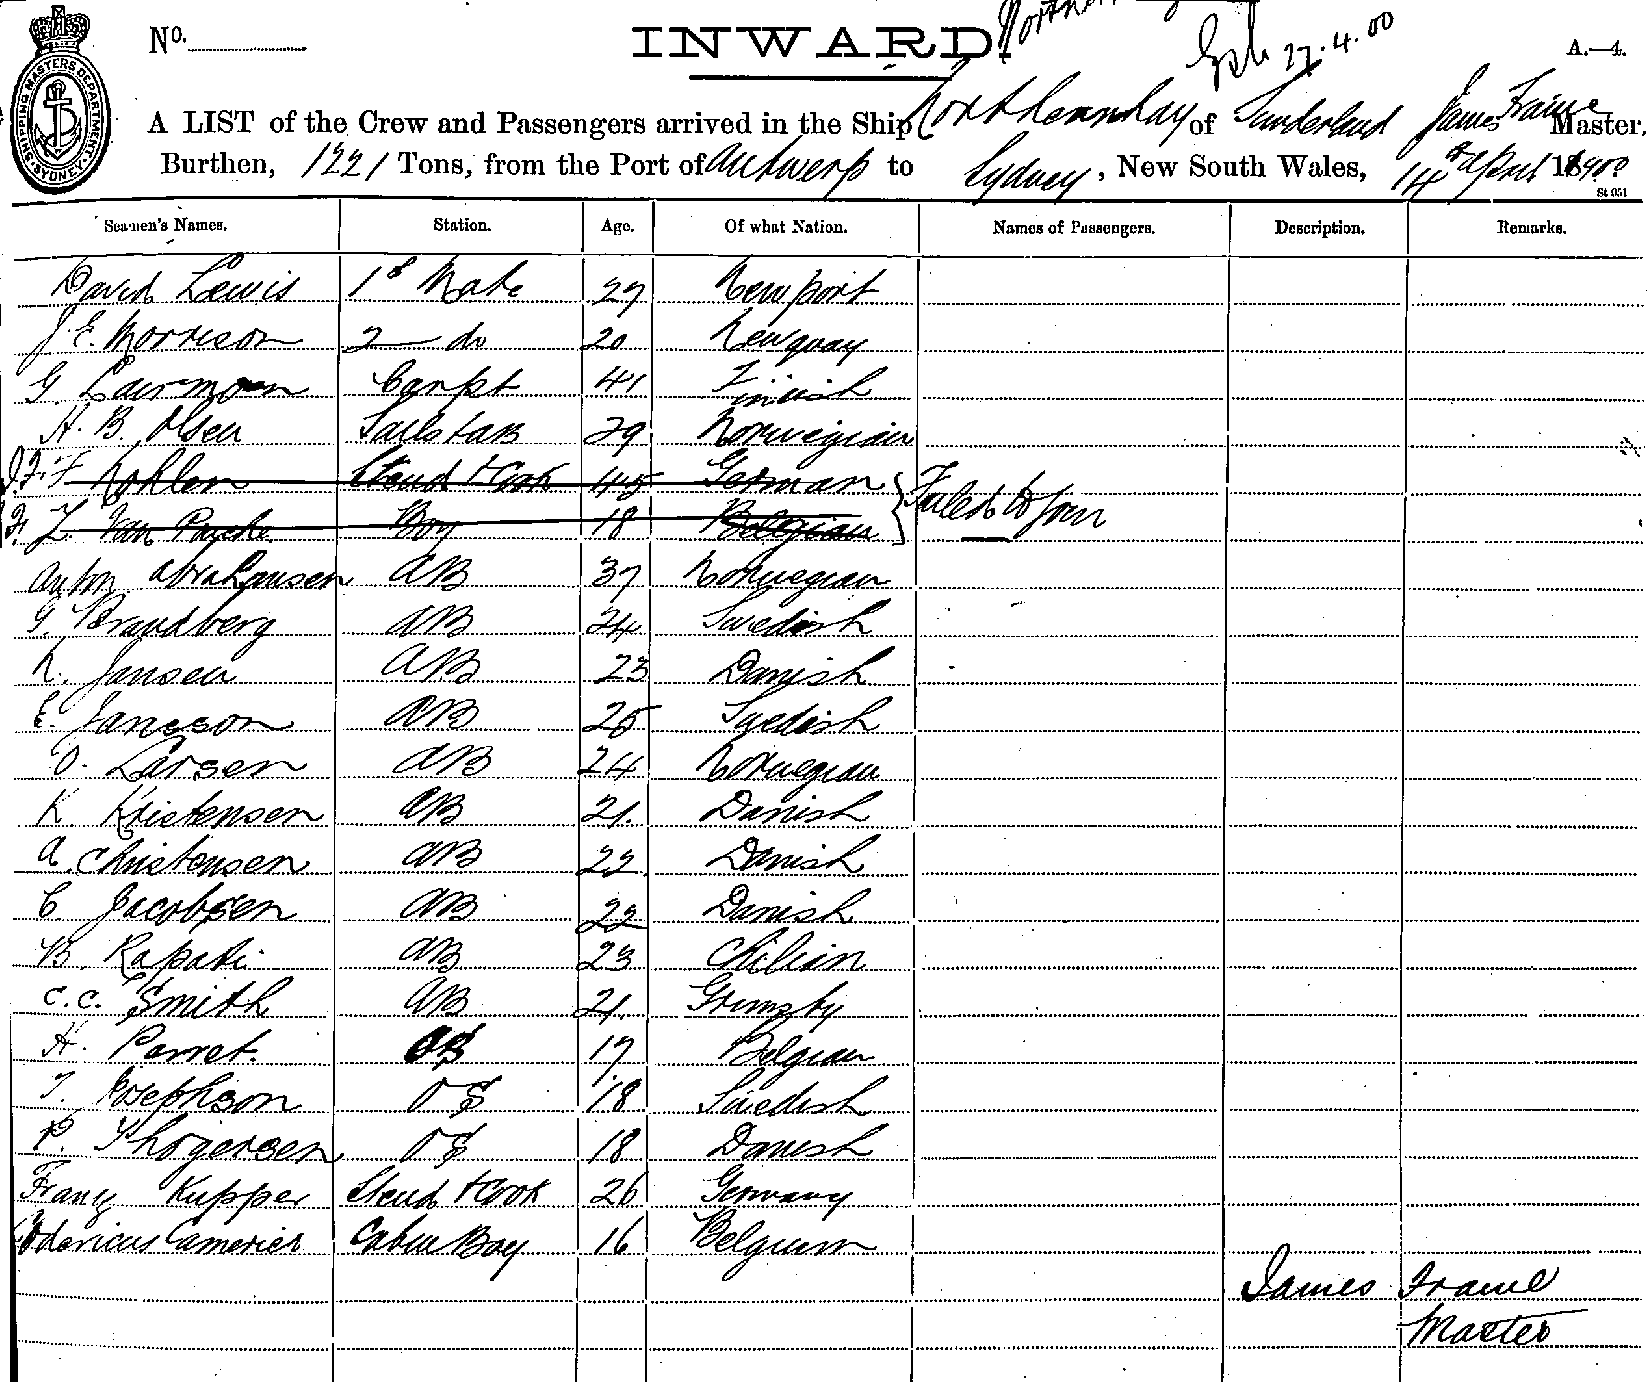 No.
INWARD.
27.4.00
A.—4.
SHIPPING MASTERS DEPARTMENT SYDNEY
A LIST of the Crew and Passengers arrived in the Ship of Sunderland James Frame Master.
Burthen, 1221 Tons, from the Port of Antwerp to Sydney, New South Wales, 14th April 1900
St 951
Seamen's Names. Station. Age. Of what Nation. Names of Passengers. Description. Remarks.
David Lewis 1st Mate 27 Newport
J. E. Morrison 2 do 20 Newquay
G. Carpt 41 Finish
H. B. Olsen Sails & AB 29 Norwegian
Kohler Steud & Cook 45 German
Van Boy 18 Belgian Failed to join
Anton Abrahansen AB 37 Norwegian
G. Brandberg AB 24 Swedish
N. Jansen AB 23 Danish
E. Jansson AB 25 Swedish
O. Larsen AB 24 Norwegian
K Kristensen AB 21. Danish
A. Christensen AB 22 Danish
C. Jacobsen AB 22 Danish
B. Rapati AB 23 Chilian
C. C. Smith AB 21. Grimsby
H. Perret. OS 17 Belgian
T. Josephson OS 18 Swedish
P. Thogersen OS 18 Danish
Franz Kupper Steud & Cook 26 Germany
Cabin Boy 16 Belgium
James Frame
Master